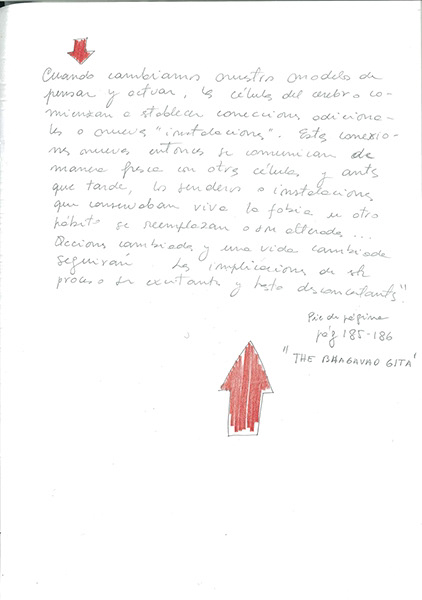 Cuando cambiamos nuestro modelo de
pensar y actuar, las células del cerebro co-
mienzan a establecer conecciones adiciona-
les o nuevas "instalaciones". Estas conexio-
nes nuevas entonces se comunican de
manera fresca con otras células y antes
que tarde, los senderos o instalaciones
que conservaban viva la fobia u otro
hábito se reemplazan o son alterados...
Acciones cambiadas y una vida cambiada
seguirán. Las implicaciones de
proceso son excitantes y hasta desconcertantes".
Pie de página
pág 185-186
"THE BHAGAVAD GITA"